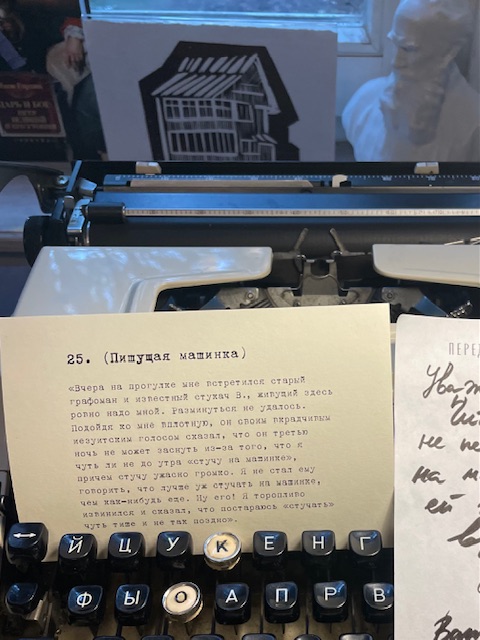 ДАРЬ И БОГ
25. (Пишущая машинка)
«Вчера на прогулке мне встретился старый
графоман и известный стукач В., живущий здесь
ровно надо мной. Разминуться не удалось.
Подойдя ко мне вплотную, он своим вкрадчивым
иезуитским голосом сказал, что он третью
ночь не может заснуть из-за того, что я
чуть ли не до утра «стучу на машинке»,
причем стучу ужасно громко. Я не стал ему
говорить, что лучше уж стучать на машинке,
чем как-нибудь еще. Ну его! Я торопливо
извинился и сказал, что постараюсь «стучать»
чуть тише и не так поздно».
ПЕРЕД
не
на
ей
Й Ц У К Е Н Г
Ф Ы О А П Р В